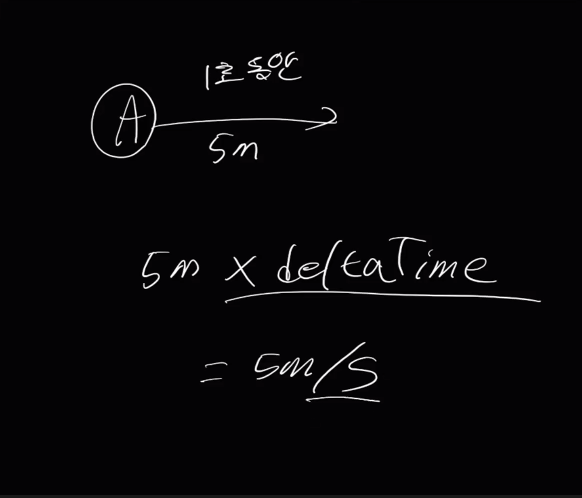 A
1초 동안
5m
5m × deltaTime
= 5m/s